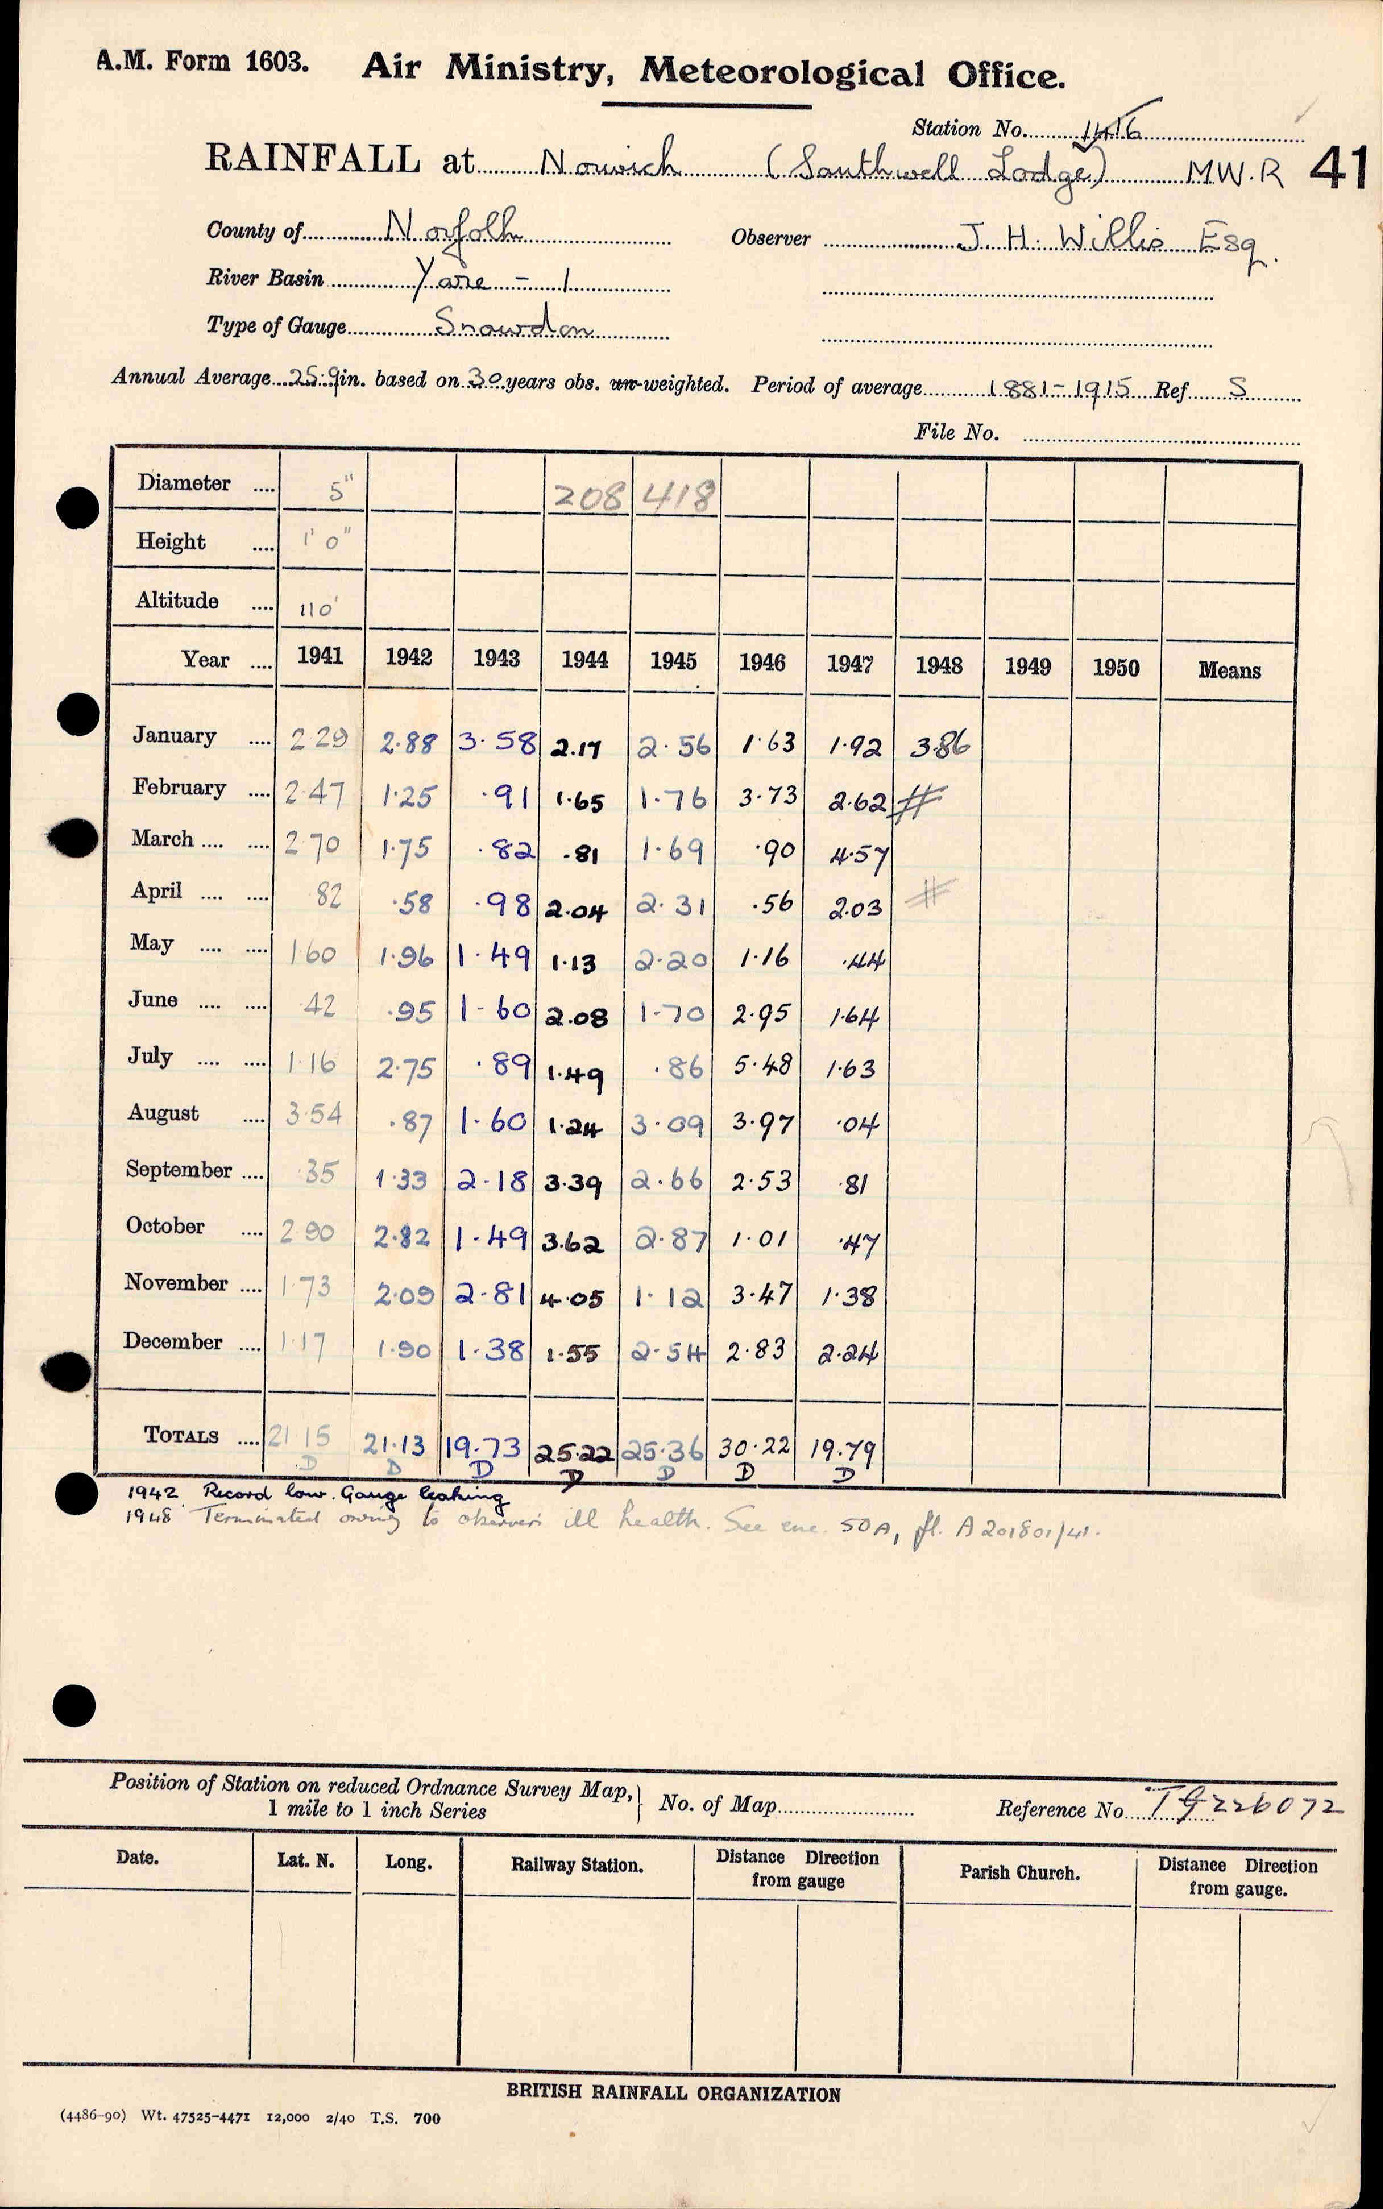 A.M. Form 1603. Air Ministry, Meteorological Office.
Station No. 1416
RAINFALL at Norwich (Southwell Lodge) MW.R 41
County of Norfolk Observer J. H. Willis Esq.
River Basin Yare - 1
Type of Gauge Snowdon
Annual Average 25.9 in. based on 30 years obs. un-weighted. Period of average 1881-1915 Ref. S
File No.
Diameter .... 5" 208 418
Height .... 1' 0"
Altitude .... 110'
Year .... 1941 1942 1943 1944 1945 1946 1947 1948 1949 1950 Means
January .... 2.29 2.88 3.58 2.17 2.56 1.63 1.92 3.86
February .... 2.47 1.25 .91 1.65 1.76 3.73 2.62 #
March .... .... 2.70 1.75 .82 .81 1.69 .90 4.57
April .... .... .82 .58 .98 2.04 2.31 .56 2.03 #
May .... .... 1.60 1.96 1.49 1.13 2.20 1.16 .44
June .... .... .42 .95 1.60 2.08 1.70 2.95 1.64
July .... .... 1.16 2.75 .89 1.49 .86 5.48 1.63
August .... 3.54 .87 1.60 1.24 3.09 3.97 .04
September .... .35 1.33 2.18 3.39 2.66 2.53 .81
October .... 2.90 2.82 1.49 3.62 2.87 1.01 .47
November .... 1.73 2.09 2.81 4.05 1.12 3.47 1.38
December .... 1.17 1.90 1.38 1.55 2.54 2.83 2.24
TOTALS .... 21.15 21.13 19.73 25.22 25.36 30.22 19.79
D D D D D D D
1942 Record low. Gauge leaking
1948 Terminated owing to observers ill health. See enc. 50A, fl. A201801/41.
Position of Station on reduced Ordnance Survey Map,
1 mile to 1 inch Series
No. of Map
Reference No. TG226072
Date. Lat. N. Long. Railway Station. Distance Direction from gauge Parish Church. Distance Direction from gauge.
BRITISH RAINFALL ORGANIZATION
(4486-90) Wt. 47525-4471 12,000 2/40 T.S. 700